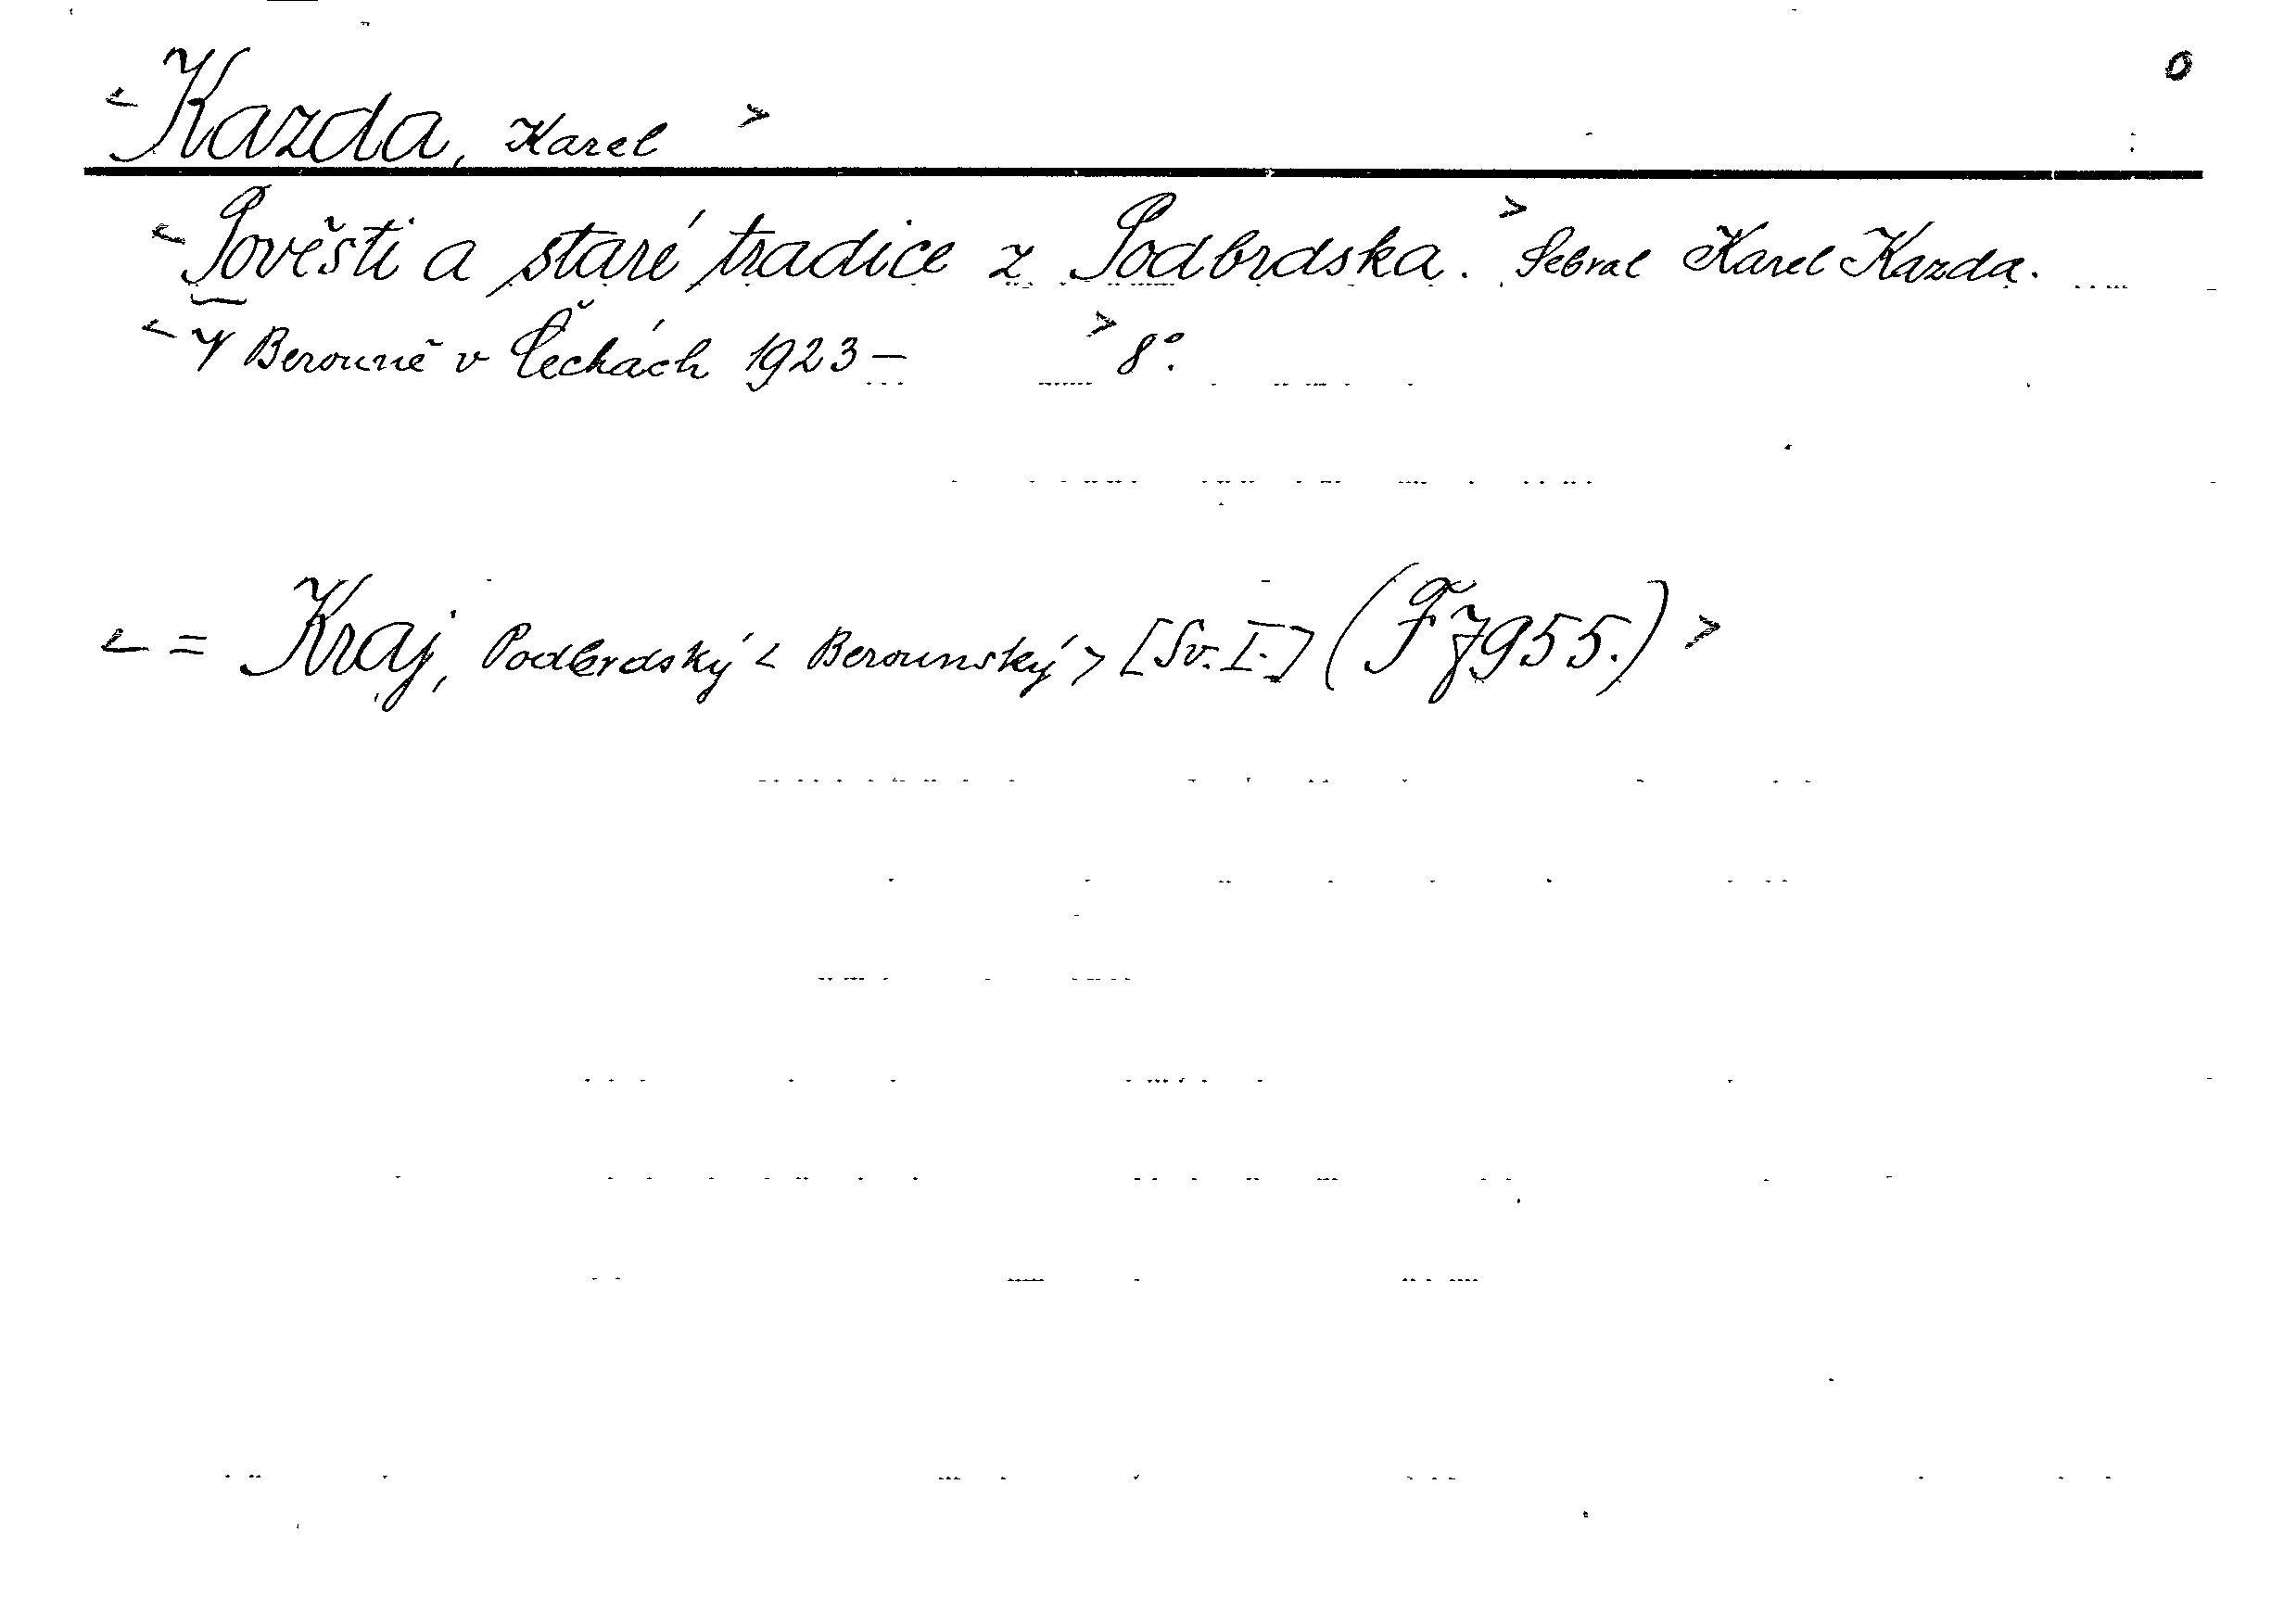 <Kazda, Karel> 0
<Pověsti a staré tradice z Podbrdska.> Sebral Karel Kazda.
<V Berouně v Čechách 1923– > 8°.
<= Kraj, Podbrdský < Berounský > [Sv. I.] (F 7955.)>